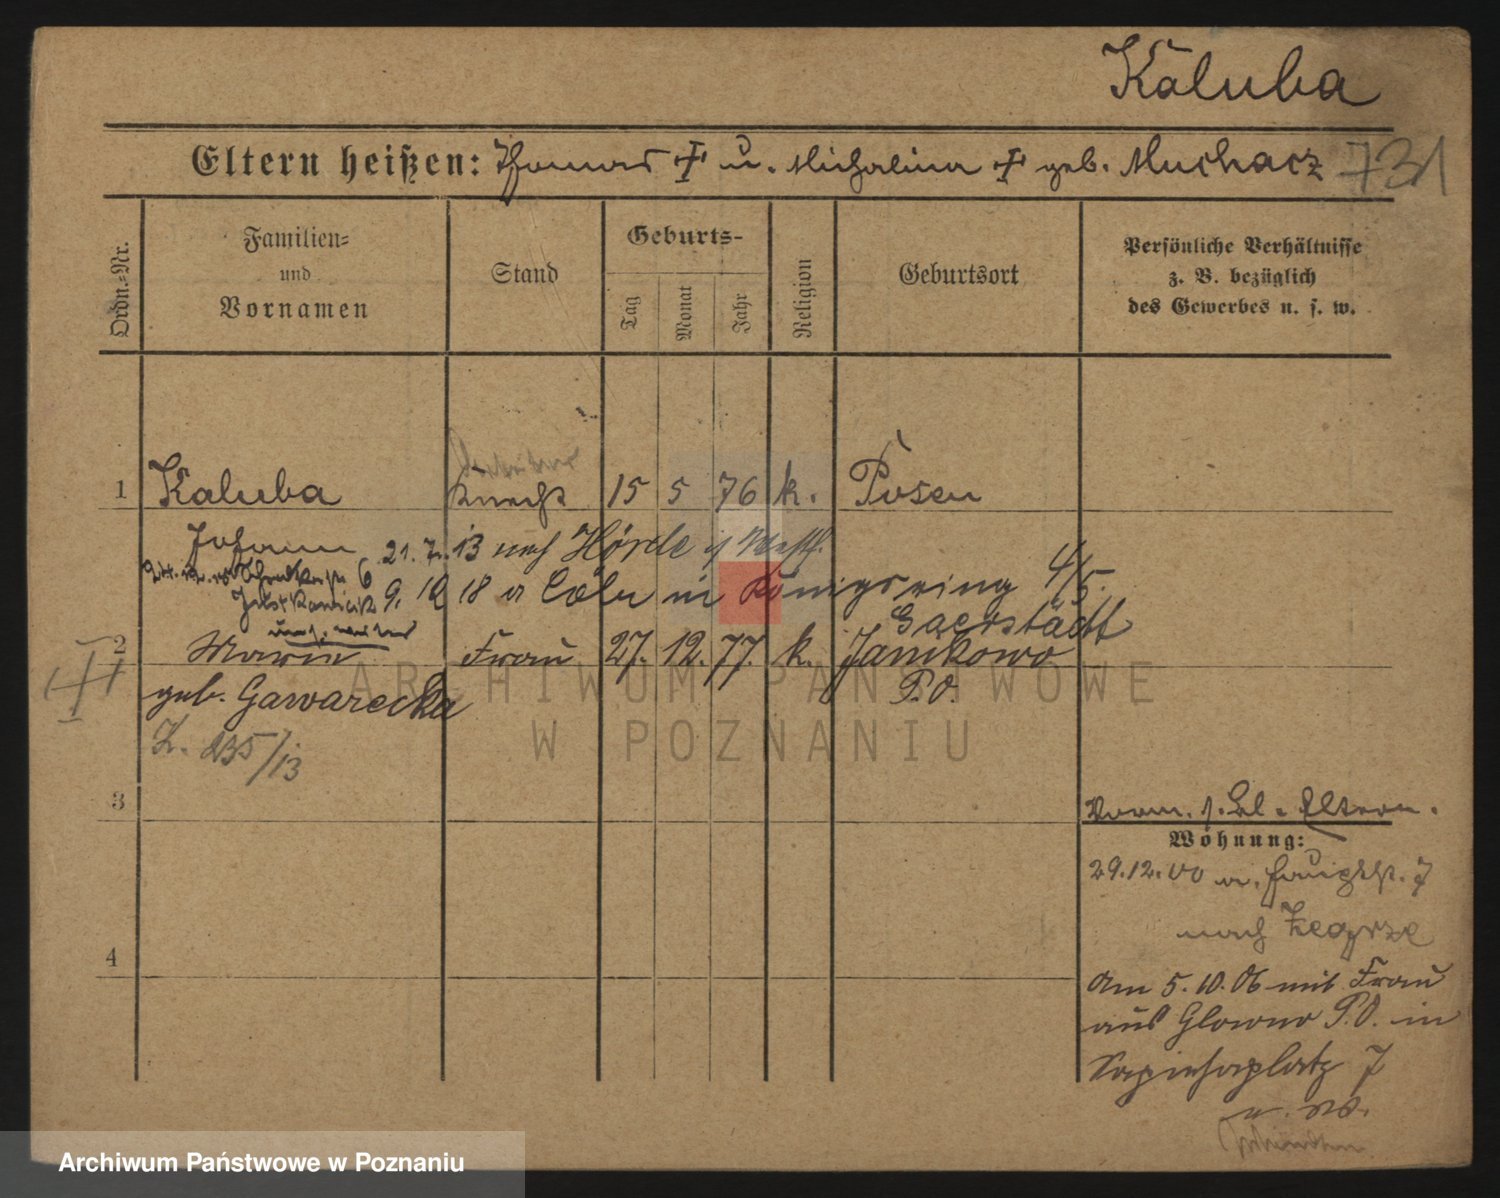 Kaluba
Eltern heißen: Thomas u. Michalina geb. Muchacz 731
Ordn.-Nr.
Familien- und Vornamen
Stand
Geburts-
Tag
Monat
Jahr
Religion
Geburtsort
Persönliche Verhältnisse
z. B. bezüglich
des Gewerbes u. s. w.
1 Kaluba Knecht 15 5 76 k. Posen
Johann 21. 7. 13 nach Hörde
6 9. 12 18 Cöln Königsring 4/5.
2 Maria Frau 27. 12. 77. k. Janikowo
geb. Gawarecka P. O.
235/13
3
4
Eltern.
Wohnung:
29.12.00
nach Zegrze
Am 5. 10. 06 mit Frau
aus Glowno P.O. in
Sapiehaplatz 7
ARCHIWUM PAŃSTWOWE
W POZNANIU
Archiwum Państwowe w Poznaniu